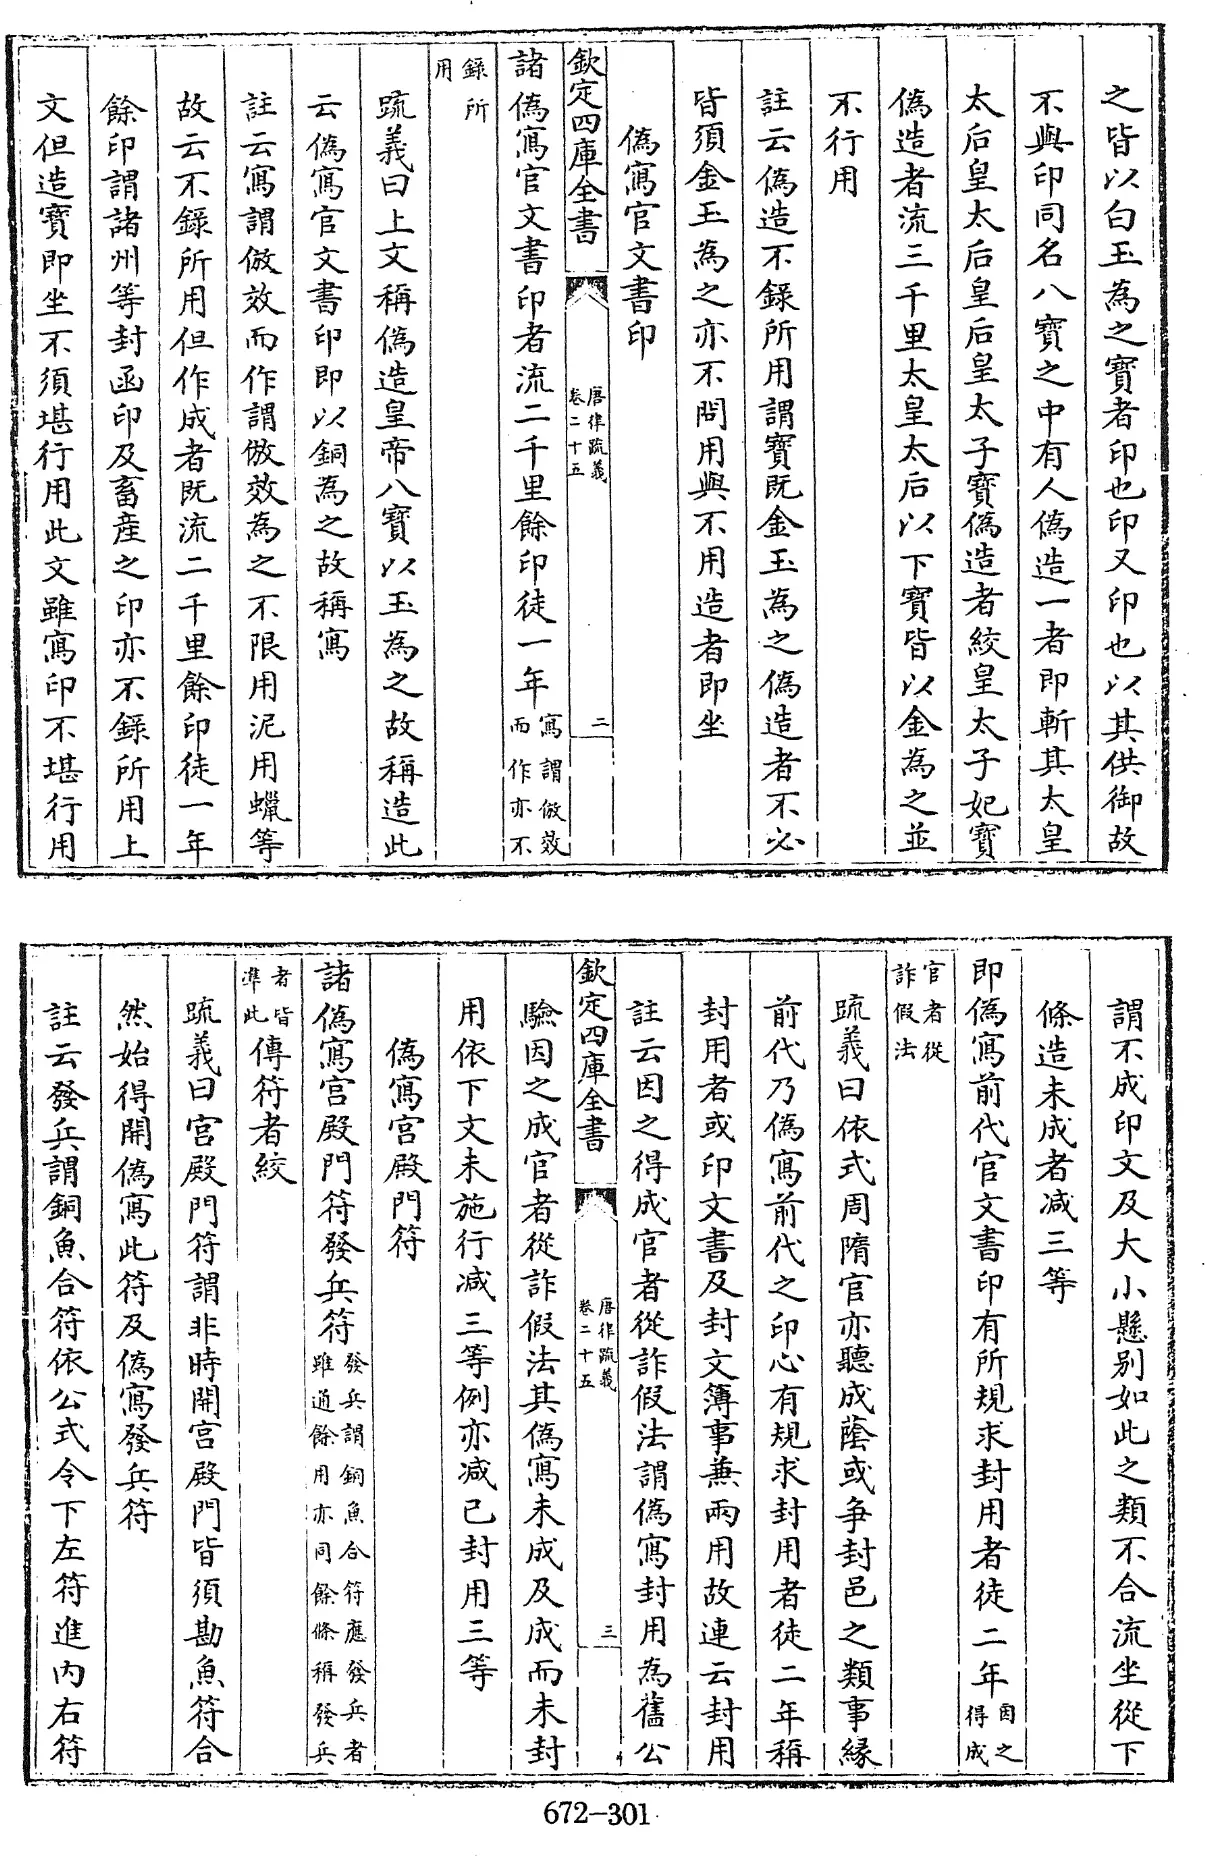 之皆以白玉為之寳者印也印又印也以其供御故
不與印同名八寳之中有人偽造一者即斬其太皇
太后皇太后皇后皇太子寳偽造者絞皇太子妃寳
偽造者流三千里太皇太后以下寳皆以金為之並
不行用
註云偽造不錄所用謂寳既金玉為之偽造者不必
皆須金玉為之亦不問用與不用造者即坐
偽寫官文書印
欽定四庫全書
唐律疏義
卷二十五
二
諸偽寫官文書印者流二千里餘印徒一年
寫謂倣效
而作亦不
錄所
用
疏義曰上文稱偽造皇帝八寳以玉為之故稱造此
云偽寫官文書印即以銅為之故稱寫
註云寫謂倣效而作謂倣效為之不限用泥用蠟等
故云不錄所用但作成者既流二千里餘印徒一年
餘印謂諸州等封函印及畜產之印亦不錄所用上
文但造寳即坐不須堪行用此文雖寫印不堪行用
謂不成印文及大小懸别如此之類不合流坐從下
條造未成者减三等
即偽寫前代官文書印有所規求封用者徒二年
因之
得成
官者從
詐假法
疏義曰依式周隋官亦聽成蔭或争封邑之類事緣
前代乃偽寫前代之印心有規求封用者徒二年稱
封用者或印文書及封文簿事兼兩用故連云封用
註云因之得成官者從詐假法謂偽寫封用為舊公
欽定四庫全書
唐律疏義
卷二十五
三
驗因之成官者從詐假法其偽寫未成及成而未封
用依下文未施行减三等例亦减已封用三等
偽寫宫殿門符
諸偽寫宫殿門符發兵符
發兵謂銅魚合符應發兵者
雖通餘用亦同餘條稱發兵
者皆
準此
傳符者絞
疏義曰宫殿門符謂非時開宫殿門皆須勘魚符合
然始得開偽寫此符及偽寫發兵符
註云發兵謂銅魚合符依公式令下左符進内右符
672-301